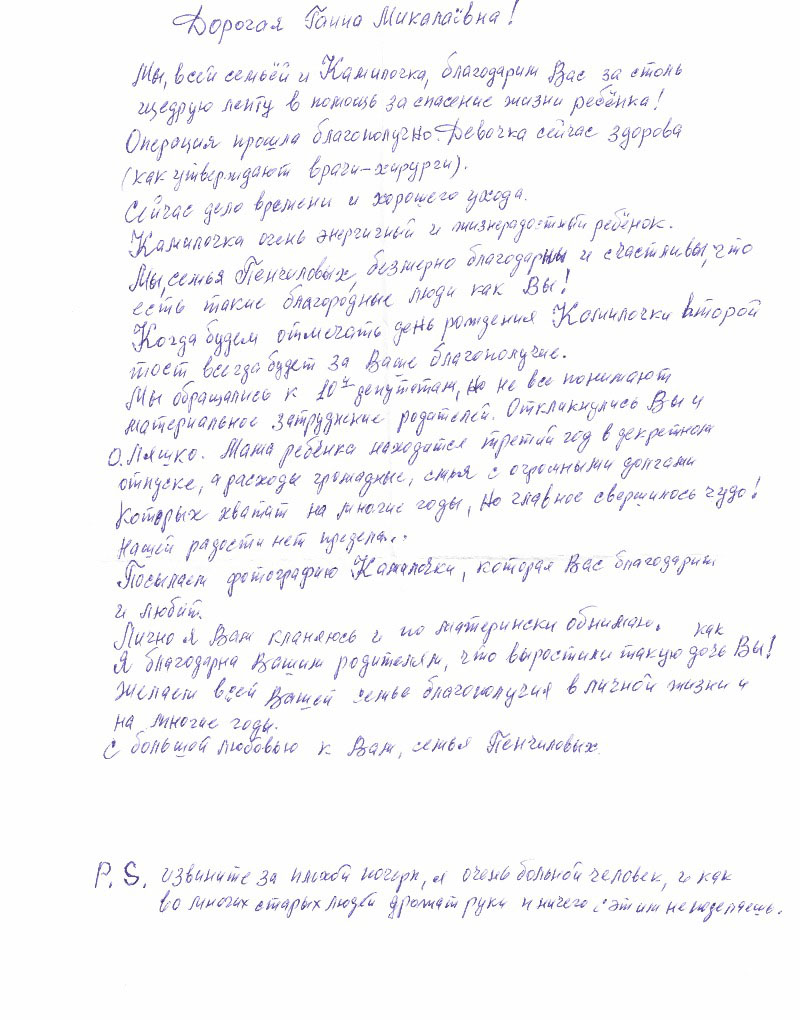 Дорогая Ганна Микалаївна!
Мы, всей семьёй и Камилочка, благодарим Вас за столь
щедрую лепту в помощь за спасение жизни ребёнка!
Операция прошла благополучно. Девочка сейчас здорова
(как утверждают врачи-хирурги).
Сейчас дело времени и хорошего ухода.
Камилочка очень энергичный и жизнерадостный ребёнок.
Мы, семья Пенчиловых, безмерно благодарны и счастливы, что
есть такие благородные люди как Вы!
Когда будем отмечать день рождения Камилочки второй
тост всегда будет за Ваше благополучие.
Мы обращались к 10 депутатам, но не все понимают
материальное затруднение родителей. Откликнулись Вы и
О. Ляшко. Мама ребёнка находится третий год в декретном
отпуске, а расходы громадные, с огромными долгами
которых хватит на многие годы, но главное свершилось чудо!
Нашей радости нет предела...
Посылаем фотографию Камилочки, которая Вас благодарит
и любит.
Лично я Вам кланяюсь и по матерински обнимаю.
Я благодарна Вашим родителям, что вырастили такую дочь как Вы!
Желаем всей Вашей семье благополучия в личной жизни и
на многие годы.
С большой любовью к Вам, семья Пенчиловых.
P.S. извините за плохой почерк, я очень больной человек, и как
во многих старых людей дрожат руки и ничего с этим не поделаешь.